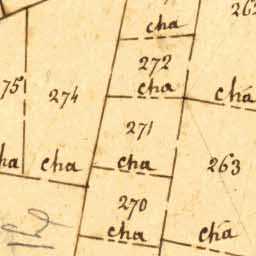 262
cha
272
cha
chá
75
274
271
cha
cha
cha
263
270
cha
chá